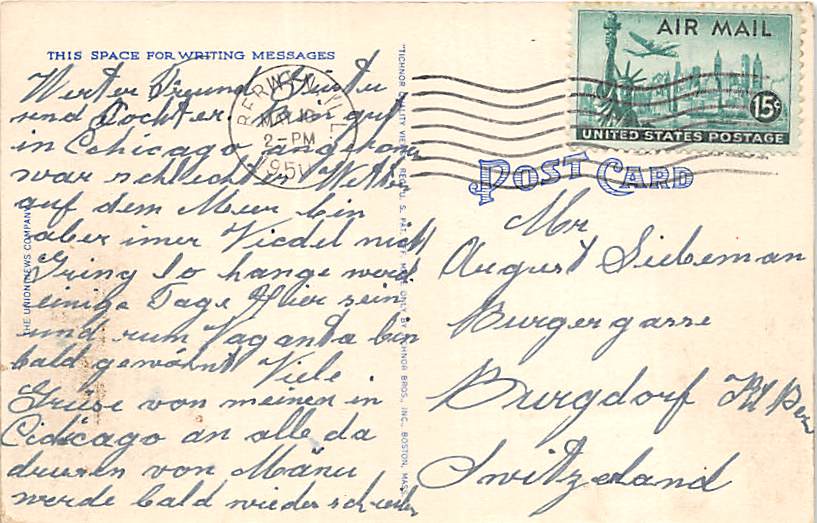 THIS SPACE FOR WRITING MESSAGES
Werter Freund
und Tochter. Bin gut
in Chicago angekom
war schlechter
auf dem Meer bin
aber imer Fiedel
so hange
einige Tage Hier sein
und rum Vaganda bin
bald gewöhnt Viele
Grüse von meinen in
Cidicago an alle da
drusen von Mänu
werde bald wieder schreiben
THE UNION NEWS COMPANY
"TICHNOR QUALITY VIEWS," REG. U. S. PAT. OFF. MADE ONLY BY TICHNOR BROS., INC., BOSTON, MASS.
BERWYN, ILL.
MAY 18
2-PM
195
AIR MAIL
15¢
UNITED STATES POSTAGE
POST CARD
Mr
August Siebeman
Burgergasse
Burgdorf Kt Bern
Switzerland